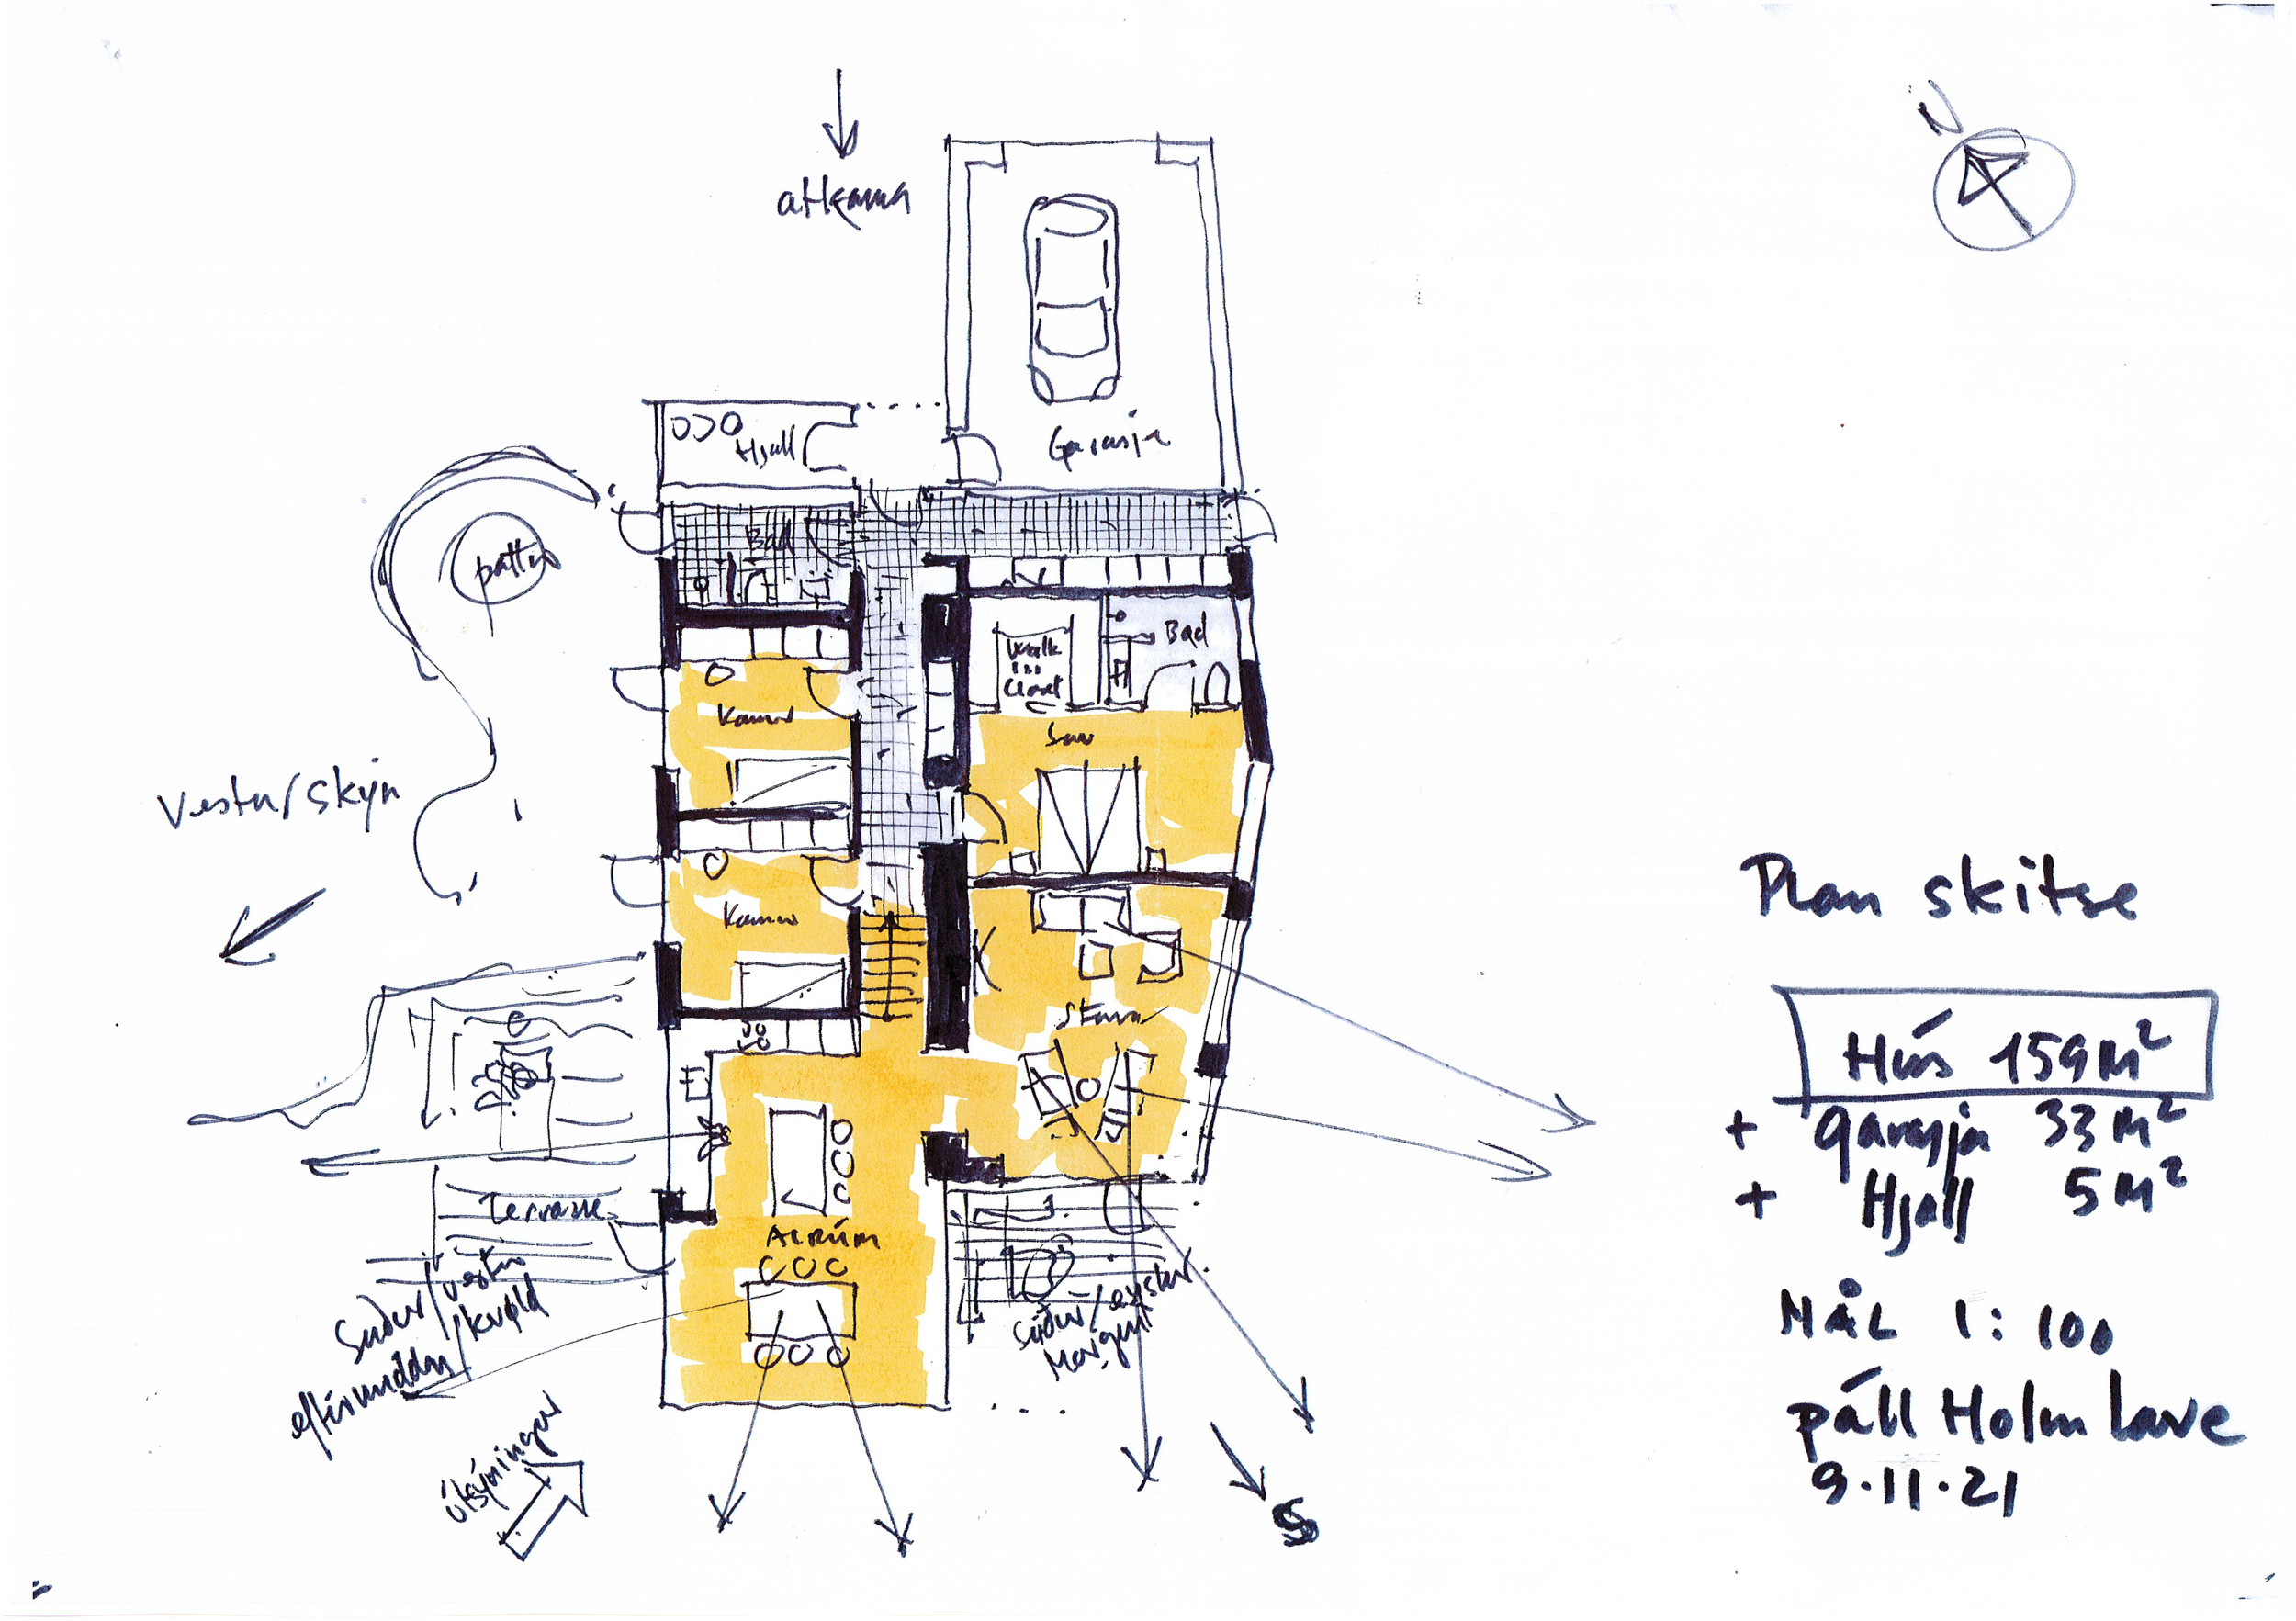 N
atkoma
Hjall
Garasja
Bað
pattur
Walk
in
Closet
Bað
Kamar
Vestur/Skýn
Kamar
Stova
Terrasse
ALRÚM
Suður/vestur
eftirmiddag/kvøld
Suður/eystur
Morgun
útsýningur
S
Plan skitse
Hús 159 M²
+ garasja 33 M²
+ Hjall 5 M²
MÅL 1:100
páll Holm Lave
9.11.21